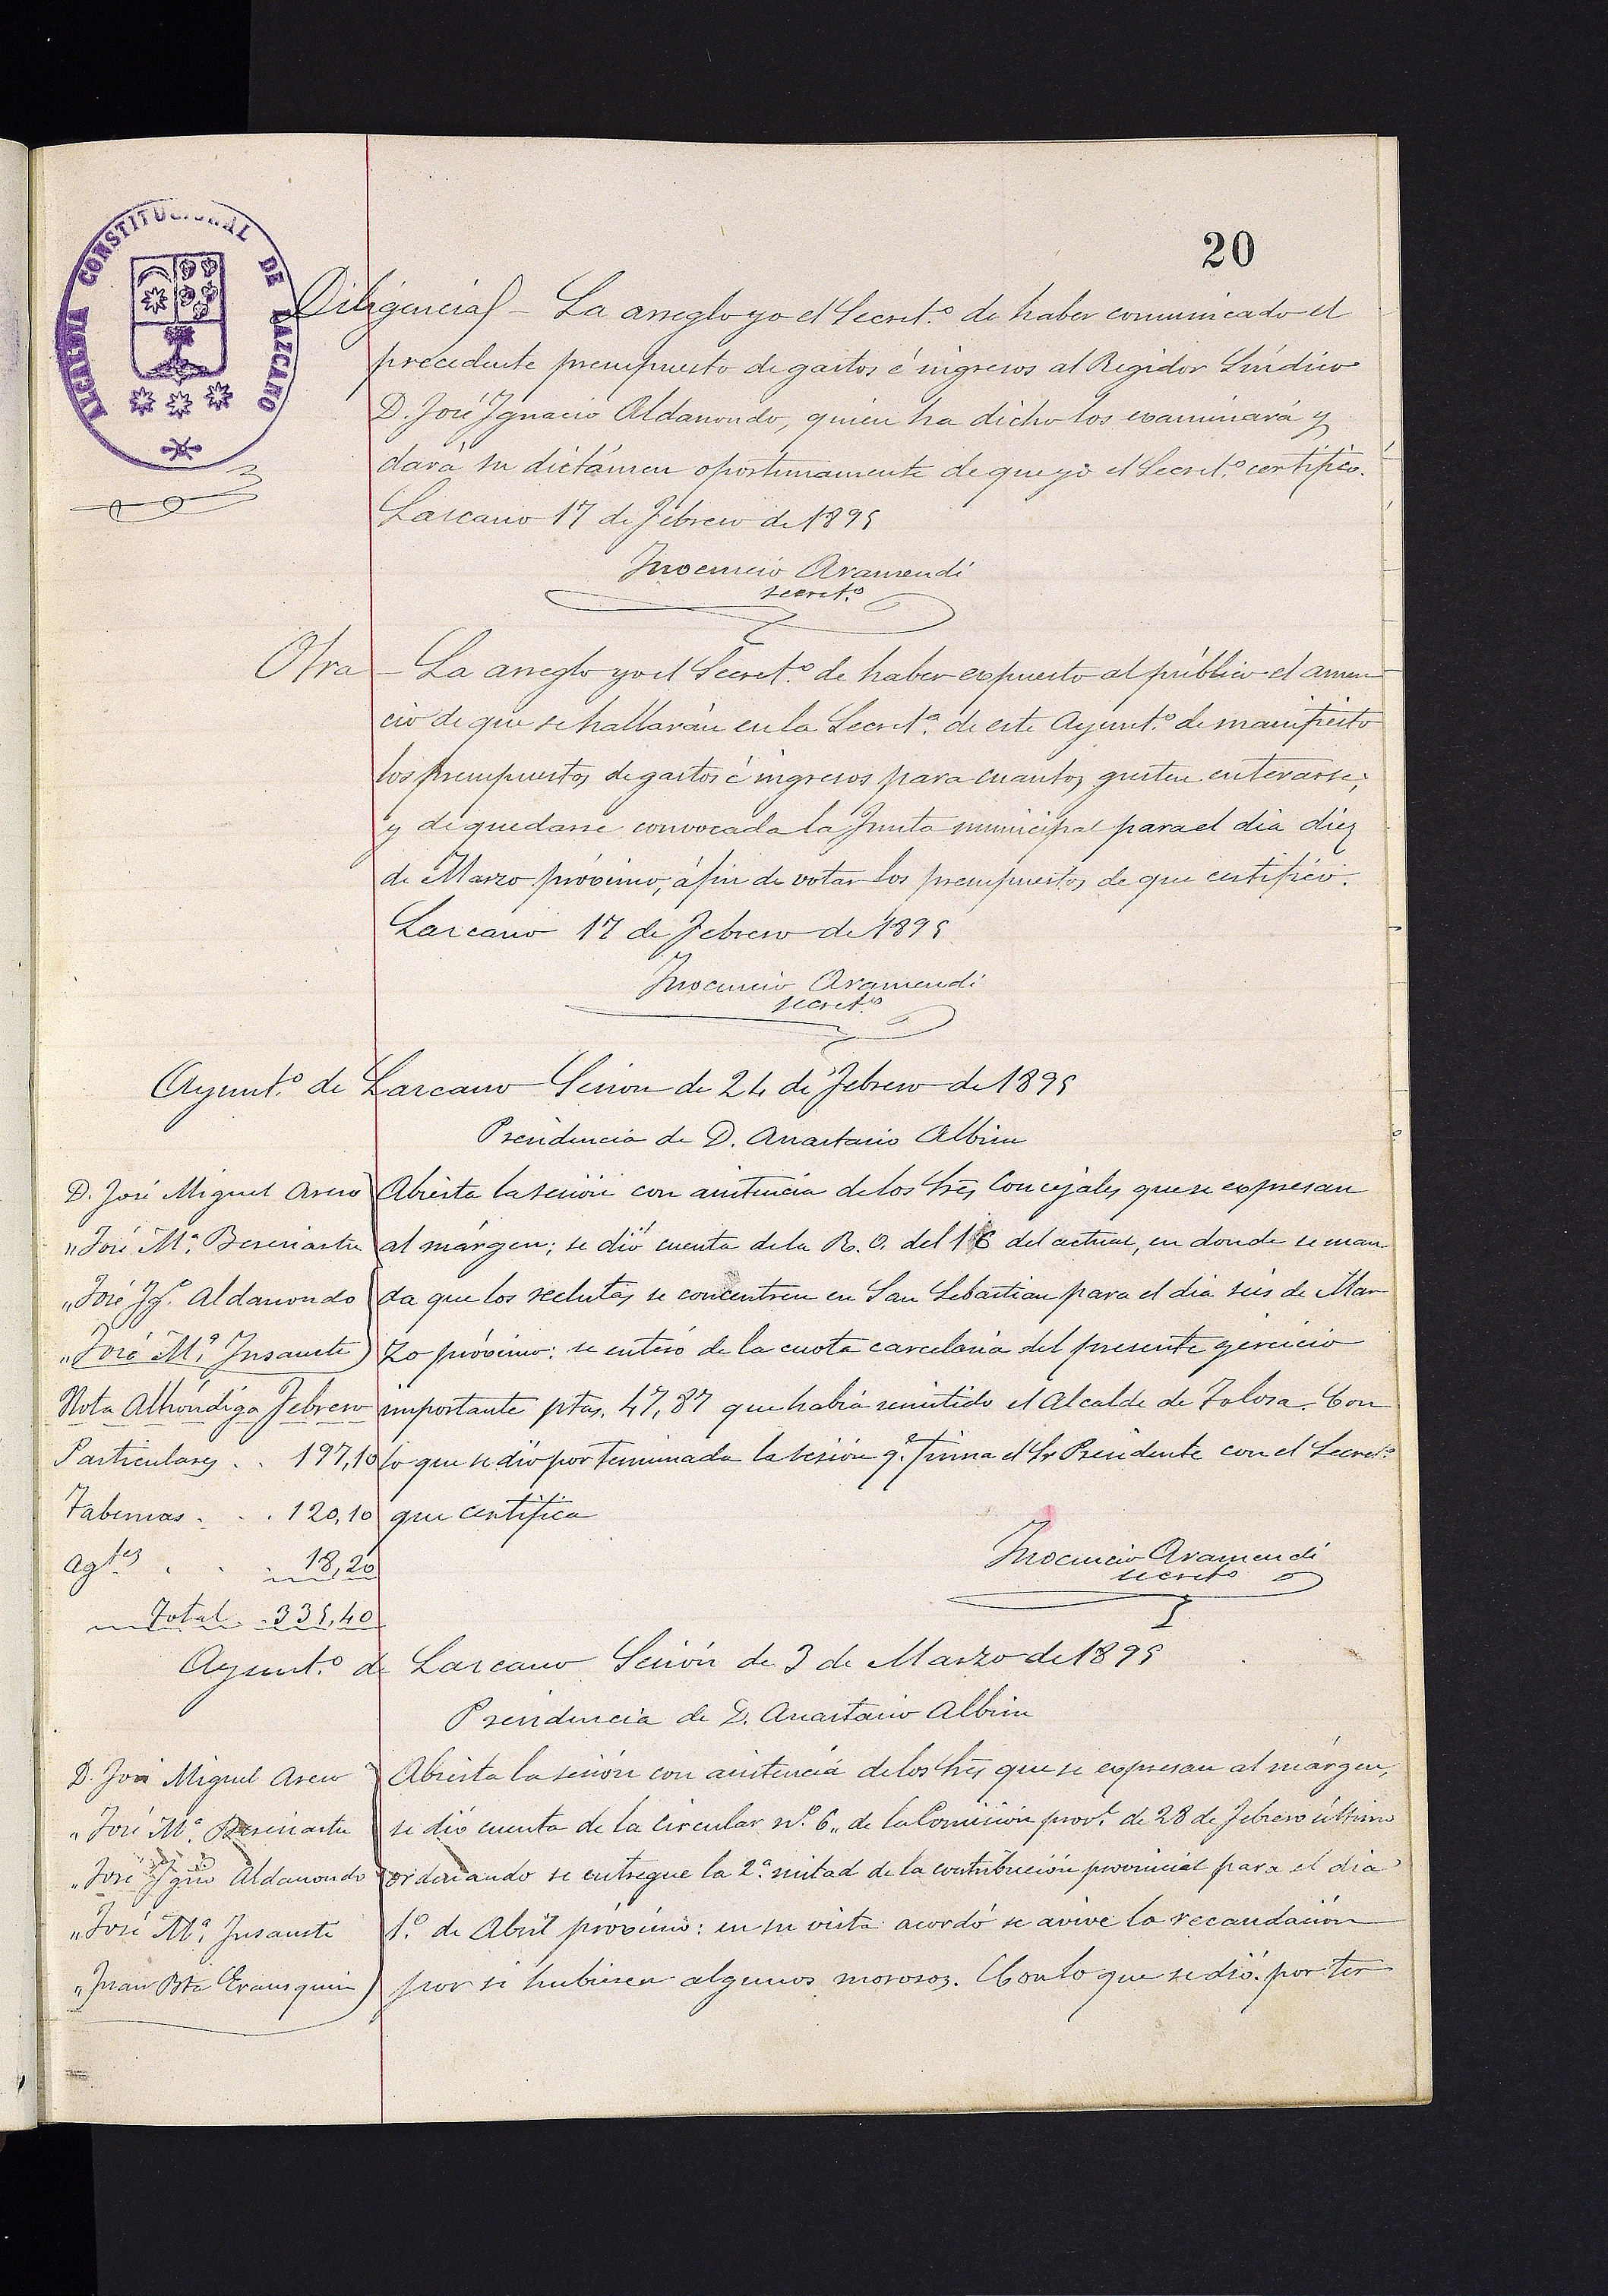 20
ALCALDIA CONSTITUCIONAL DE LAZCANO
Diligencia - La arreglo yo el Secret.º de haber comunicado el
precedente presupuesto de gastos é ingresos al Regidor Síndico
D. José Ignacio Aldanondo, quien ha dicho los examinará y
dará su dictámen oportunamente de que yo el Secret.º certifico.
Lazcano 17 de Febrero de 1895
Inocencio Aramendi
secret.º
Otra - La arreglo yo el Secret.º de haber expuesto al público el anun
cio de que se hallarán en la Secret.ª de este Ayunt.º de manifiesto
los presupuestos de gastos é ingresos para cuantos gusten enterarse;
y de quedarse convocada la Junta municipal para el dia diez
de Marzo próximo, á fin de votar los presupuestos de que certifico.
Lazcano 17 de Febrero de 1895
Inocencio Aramendi
secret.º
Ayunt.º de Lazcano Sesion de 24 de Febrero de 1895
Presidencia de D. Anastasio Albisu
D. José Miguel Aseno
" José M.ª Beseriartu
" José Ig.º Aldanondo
" José M.ª Insausti
Abierta la sesión con asistencia de los Sres Concejales que se expresan
al márgen; se dió cuenta de la R. O. del 16 del actual, en donde se man
da que los reclutas se concentren en San Sebastian para el dia seis de Mar
zo próximo: se enteró de la cuota carcelaria del presente ejercicio
importante ptas. 47,87 que habia remitido el Alcalde de Tolosa. Con
lo que se dió por terminada la sesión q.e firma el Sr Presidente con el Secret.º
que certifica
Nota Alhóndiga Febrero
Particulares . . 197,10
Tabernas . . . 120,10
Ag.tes . . . 18,20
Total . . 335,40
Inocencio Aramendi
secret.º
Ayunt.º de Lazcano Sesión de 3 de Marzo de 1895
Presidencia de D. Anastasio Albisu
D. José Miguel Aseno
" José M.ª Beseriartu
" José Ig.no Aldanondo
" José M.ª Insausti
" Juan Bta Erausquin
Abierta la sesión con asistencia de los Sres que se expresan al márgen,
se dió cuenta de la circular n.º 6,, de la Comisión prov.l de 28 de Febrero último
ordenando se entregue la 2.ª mitad de la contribución provincial para el dia
1.º de Abril próximo: en su vista acordó se avive la recaudación
por si hubiesen algunos morosos. Con lo que se dió por ter